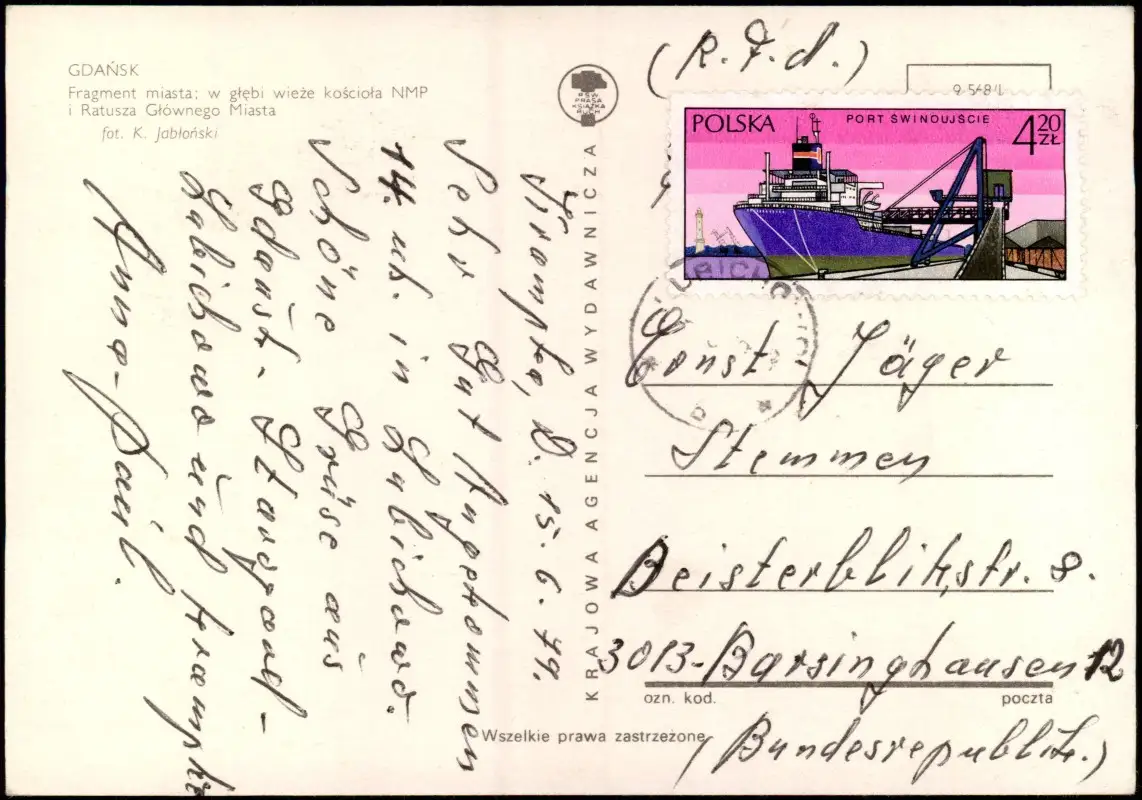 GDAŃSK
Fragment miasta; w głębi wieże kościoła NMP
i Ratusza Głównego Miasta
fot. K. Jabłoński
RSW
PRASA
KSIĄŻKA
RUCH
KRAJOWA AGENCJA WYDAWNICZA
Wszelkie prawa zastrzeżone
D. 15. 6. 79.
Sehr Gut Angekommen
14 uh. in Lubichowo.
Schöne Grüse aus
Gdańsk - Stargard -
Lubichowo und
Anna-Paul.
(R.F.N.)
9-568/1
POLSKA
PORT ŚWINOUJŚCIE
4 20 ZŁ
LUBICHOWO
Ernst Jäger
Stemmen
Beisterblikstr. 8.
3013-Barsinghausen 12
ozn. kod.
poczta
(Bundesrepublik.)